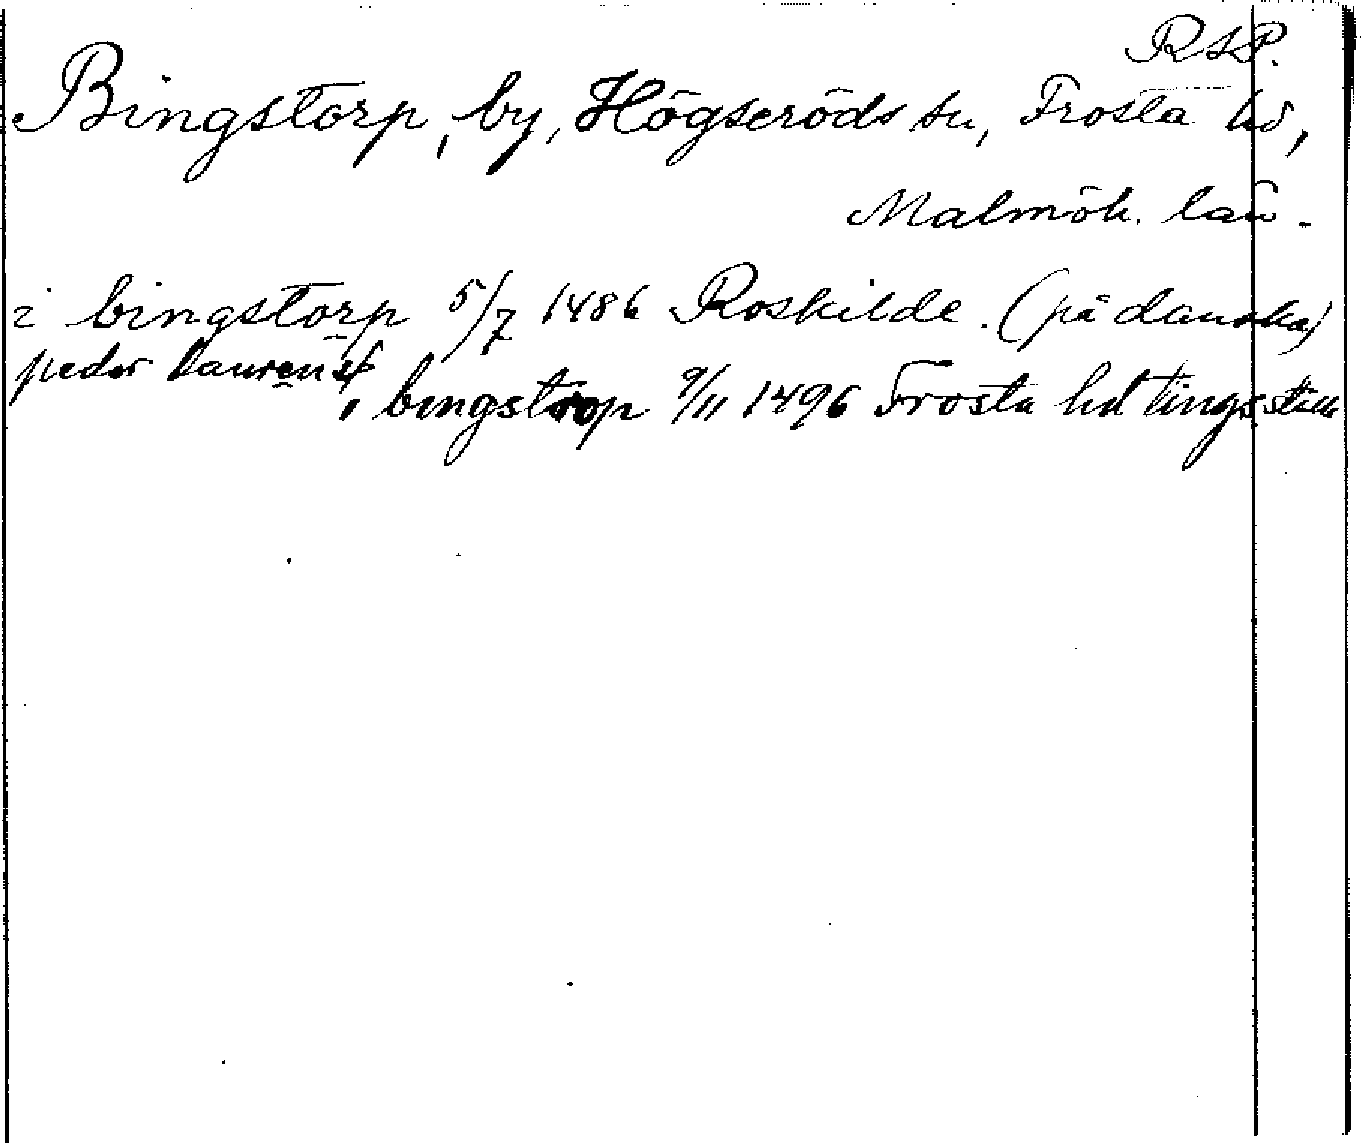 RSP.
Bingstorp, by, Högseröds sn, Frosta hd,
Malmöh. län.
i bingstorp 5/7 1486 Roskilde. (på danska)
peder laurens
i bingstrop 9/11 1496 Frosta hd tingsställe